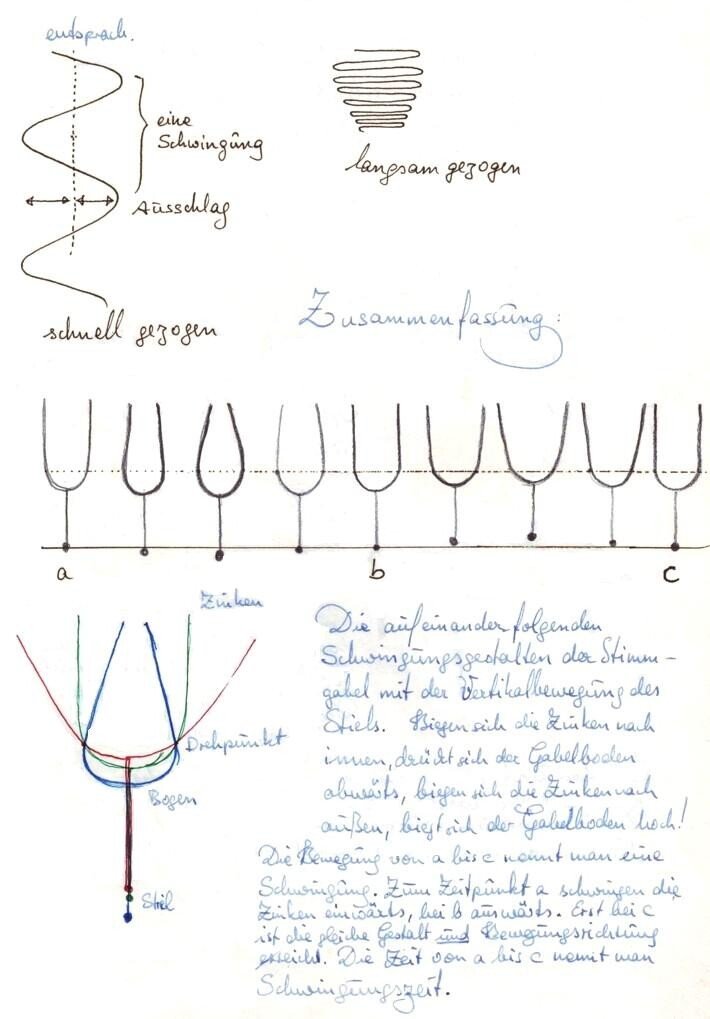 entsprach.
eine
Schwingung
Ausschlag
schnell gezogen
langsam gezogen
Zusammenfassung:
a b c
Zinken
Drehpunkt
Bogen
Stiel
Die aufeinander folgenden
Schwingungsgestalten der Stimm-
gabel mit der Vertikalbewegung des
Stiels. Biegen sich die Zinken nach
innen, drückt sich der Gabelboden
abwärts, biegen sich die Zinken nach
außen, biegt sich der Gabelboden hoch!
Die Bewegung von a bis c nennt man eine
Schwingung. Zum Zeitpunkt a schwingen die
Zinken einwärts, bei b auswärts. Erst bei c
ist die gleiche Gestalt und Bewegungsrichtung
erreicht. Die Zeit von a bis c nennt man
Schwingungszeit.